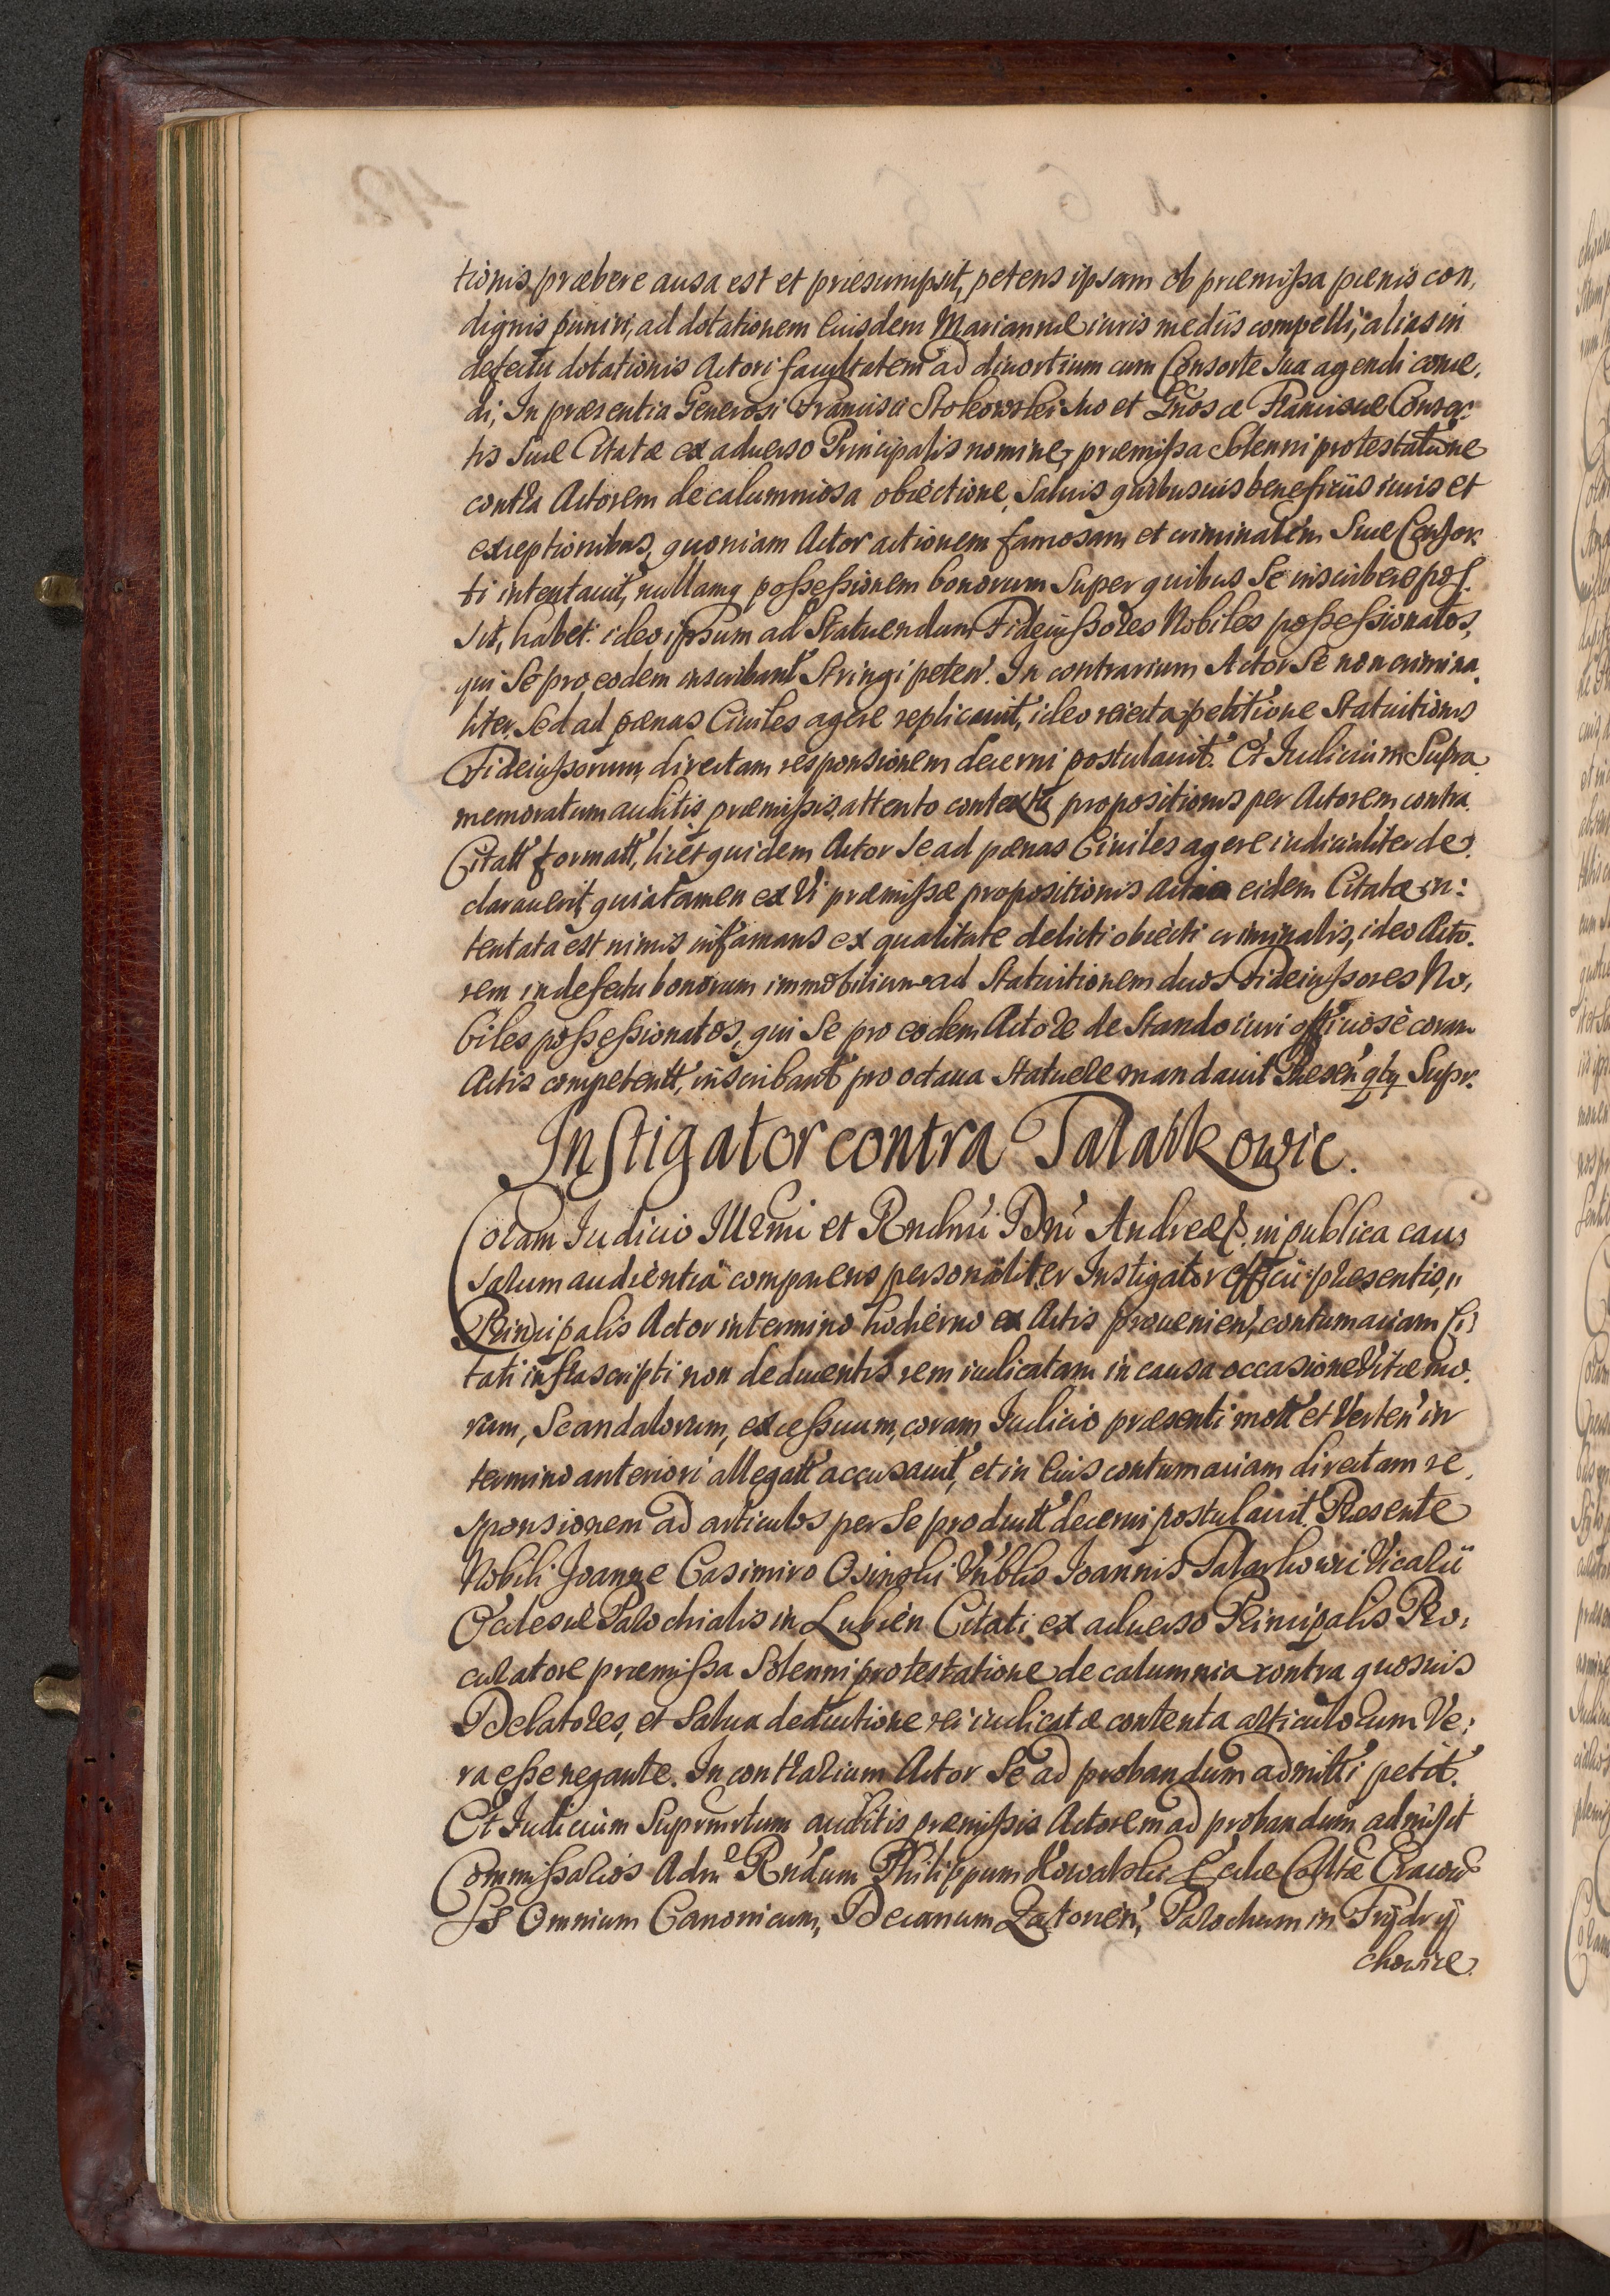 tionis, præbere ausa est et præsumpsit, petens ipsam ob præmissa pænis con,
dignis puniri, ad dotationem Euisdem Mariannæ iuris medijs compelli, alias in
defectu dotationis Actori facultatem ad diuortium cum Consorte Sua agendi conce,
di, In præsentia Generosi Francisci Stokowski suo et Gnosæ Franciscæ Consor.
tis Suæ Citatæ ex aduerso Principalis nomine, præmissa Solenni protestatione
contra Actorem de calumniosa obiectione, Saluis quibusuis beneficijs iuris et
exceptionibus, quoniam Actor actionem famosam et criminalem Suæ Consor
ti intentauit, nullamq possessionem bonorum Super quibus Se inscribere pos.
sit, habet: ideo ipsum ad Statuendum Fideiussores Nobiles possessionatos,
qui Se pro eodem inscribant Stringi peten. In contrarium Actor Se non crimina,
liter, Sed ad pænas Ciuiles agere replicauit, ideo reiecta petitione Statuitionis
Fideiussorum, directam responsionem decerni postulauit. Et Iudicium Supra
memoratum auditis præmissis, attento contextu propositionis per Actorem contra
Citatt formatt, licet quidem Actor Se ad pænas Ciuiles agere iudicialiter de,
clarauerit, quia tamen ex Vi præmissæ propositionis actio eidem Citatæ in:
tentata est nimis infamans ex qualitate delicti obiecti criminalis, ideo Acto.
rem in defectu bonorum immobilium ad Statuitionem duos Fideiussores No,
biles possessionatos, qui Se pro eodem Actore de Stando iuri officiosè coram
Actis competentt, inscribant pro octaua Statuere mandauit Presen qbq Supr.
Instigator contra Talarkowic.
Coram Iudicio Illrmi et Rndmi Dni Andreæ &. in publica cau,
sarum audientia comparens personaliter Instigator officij præsentis,
Principalis Actor in termino hodierno ex Actis prouenien, contumaciam Ci:
tati infrascripti non deducentis rem iudicatam in causa occasione Vitæ mo.
rum, Scandalorum, excessuum, coram Iudicio præsenti mott et Verten in
termino anteriori allegatt accusauit, et in Eius contumaciam directam re,
sponsionem ad articulos per Se productt decerni postulauit. Presente
Nobili Joanne Casimiro Osinski Vnblis Ioannis Talarkowic Vicarij
Eccłesiæ Parochialis in Lubień Citati, ex aduerso Principalis Pro,
curatore præmissa Solenni protestatione de calumnia contra quosuis
Delatores, et Salua deductione rei iudicatæ contenta articulorum Ve:
ra esse negante. In contrarium Actor Se ad probandum admitti petit.
Et Iudicium Suprmrtum auditis præmissis Actorem ad probandum admisit
Commissarios Admo Rndum Philippum Kowalski Ecclæ Colltæ Cracou
SS Omnium Canonicum, Decanum Zatorien, Parochum in Frydry
chowice.